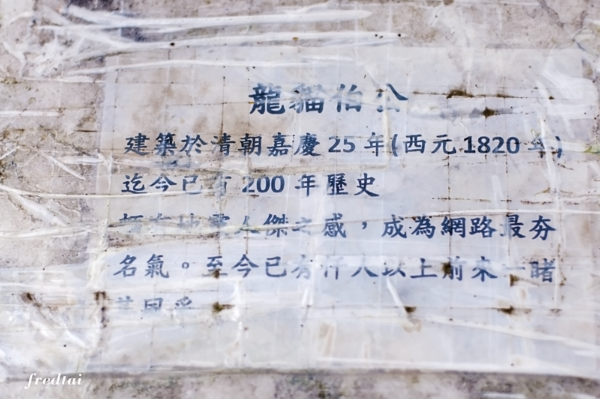 龍貓伯公
建築於清朝嘉慶25年(西元1820年)
迄今已有200年歷史
地靈人傑之感,成為網路最夯
名氣。至今已有仟人以上前來一睹
其風采
fredtai